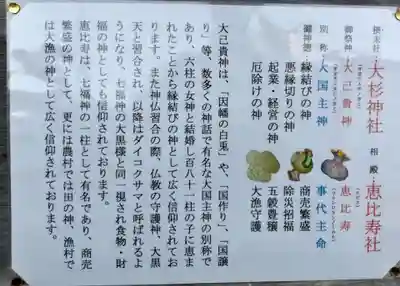 摂末社・大杉神社 相殿・恵比寿社
御祭神・大己貴神 恵比寿
別称・大国主神 事代主命
御神徳 縁結びの神 商売繁盛
悪縁切りの神 除災招福
起業・経営の神 五穀豊穣
厄除けの神 大漁守護
大己貴神は、「因幡の白兎」や、「国作り」、「国譲
り」等、数多くの神話で有名な大国主神の別称で
あり、六柱の女神と結婚し百八十一柱の子に恵ま
れたことから縁結びの神として広く信仰されてお
ります。また神仏習合の際、仏教の守護神、大黒
天と習合され、以降はダイコクサマと呼ばれるよ
うになり、七福神の大黒様と同一視され食物・財
福の神としても信仰されております。
恵比寿は、七福神の一柱として有名であり、商売
繁盛の神として、更には農村では田の神、漁村で
は大漁の神として広く信仰されております。